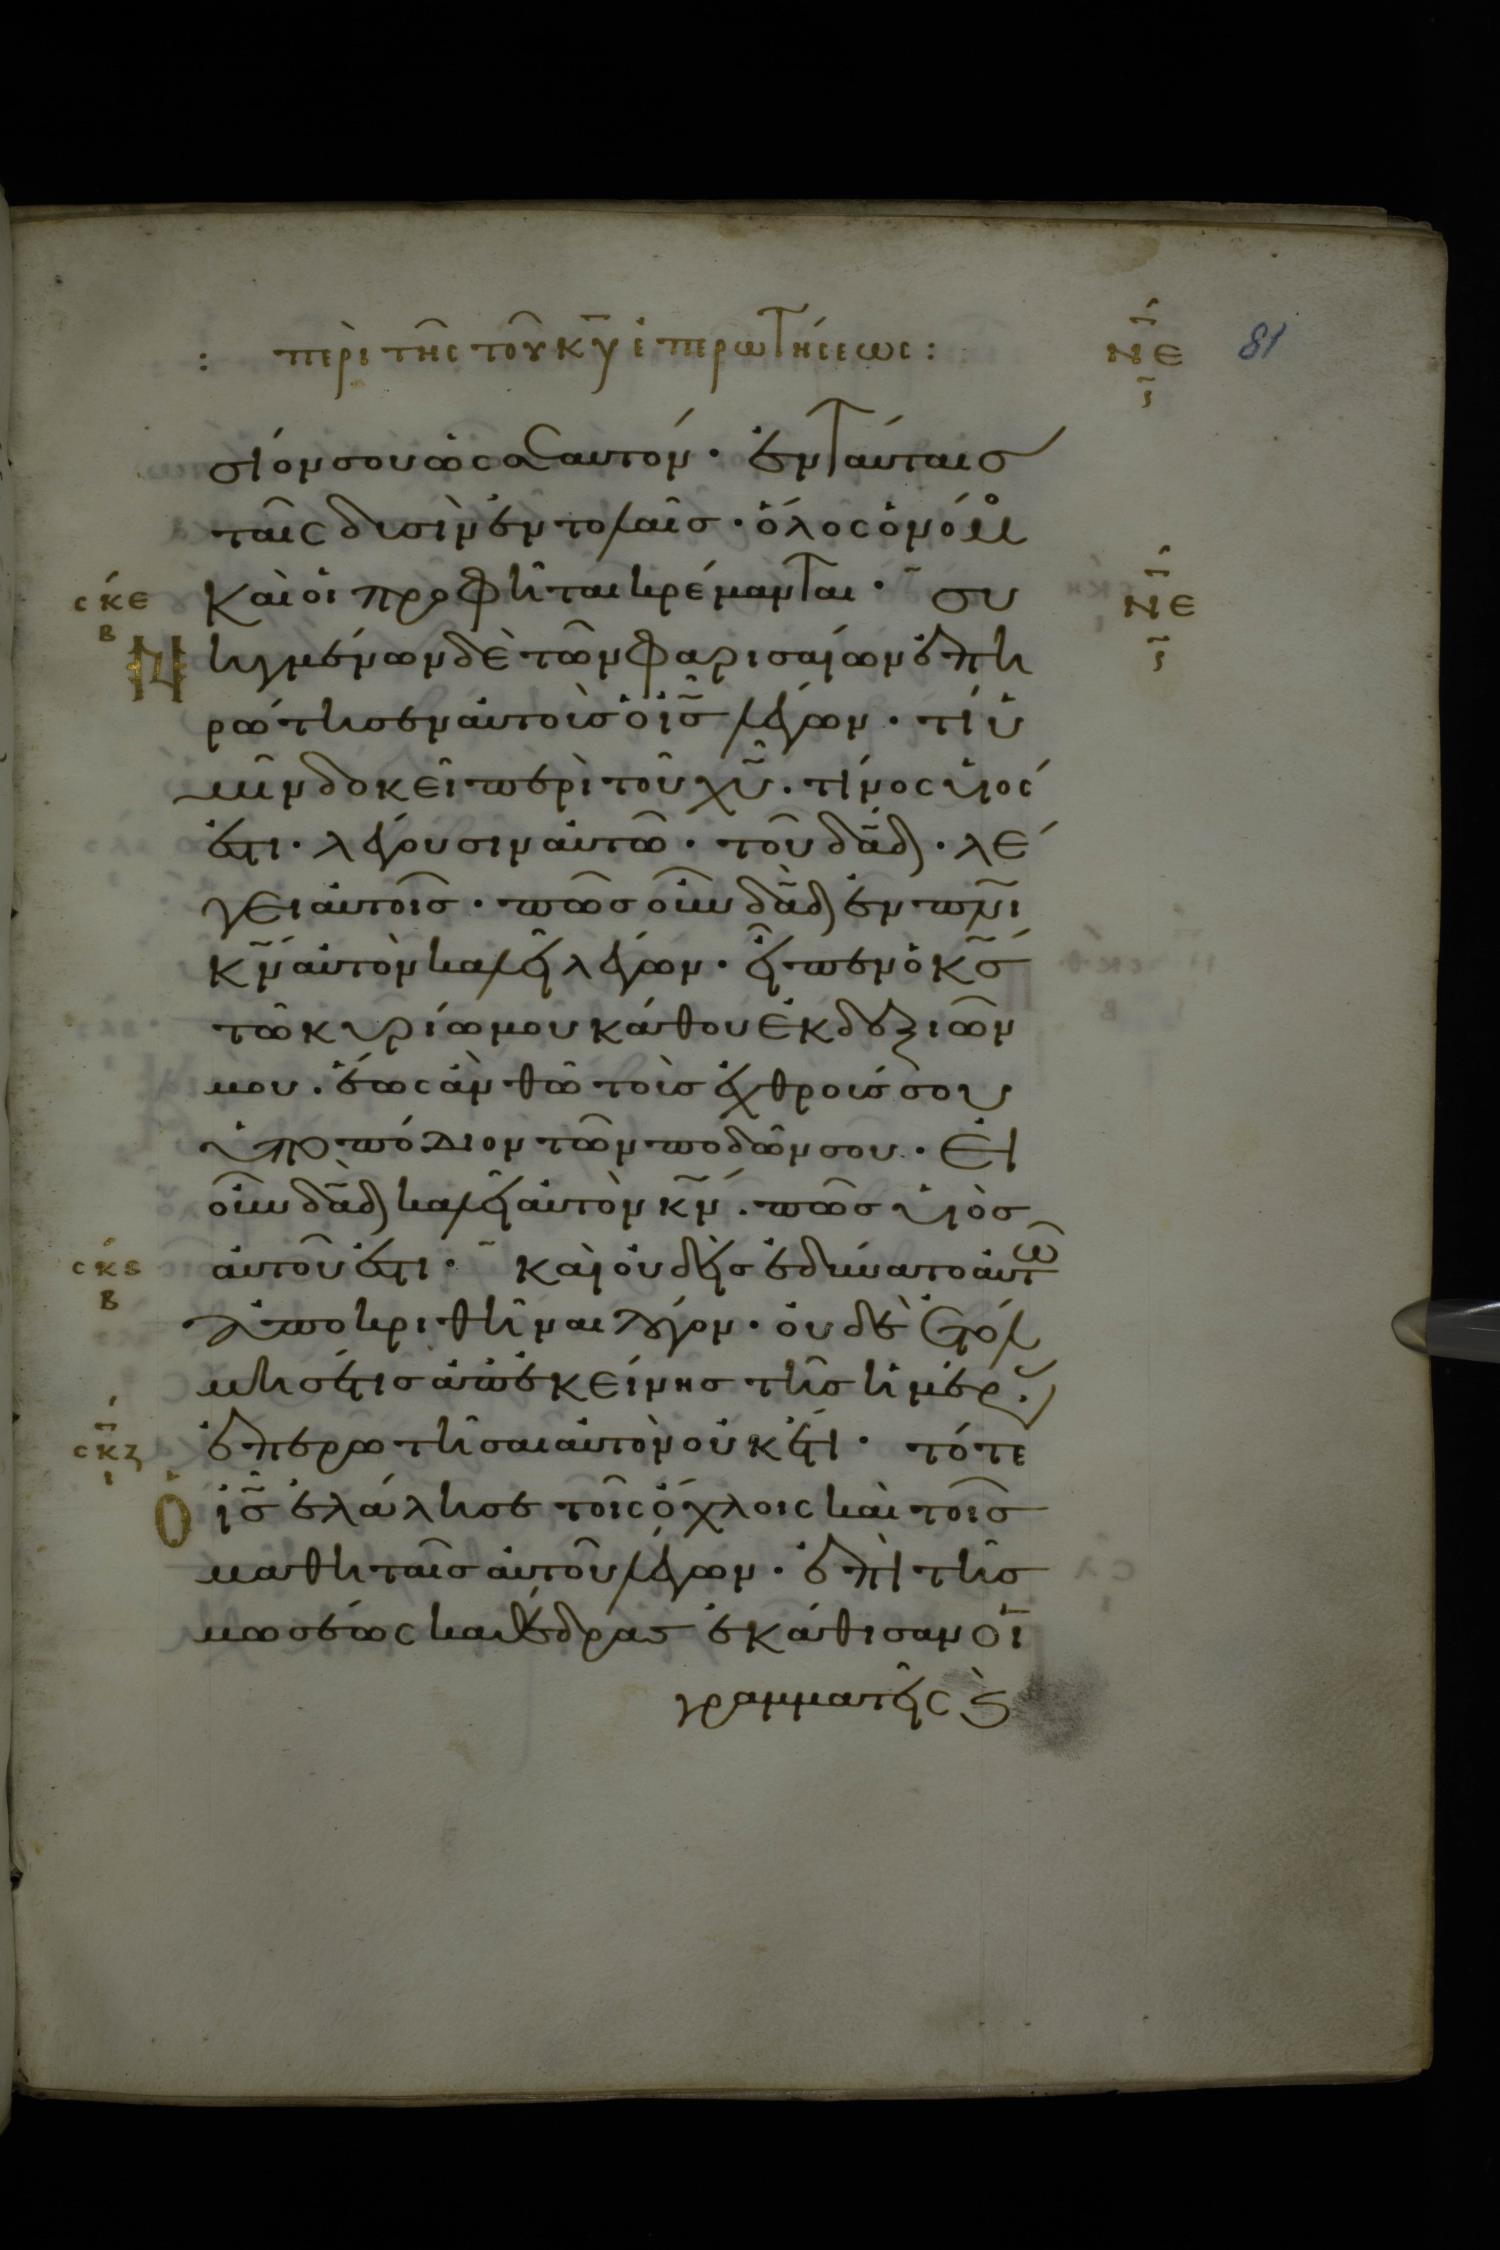 : περὶ τῆς τοῦ κ̅υ̅ ἐπερωτήσεως :
ΝΕ
81
σίον σου ὡς ἑαυτόν · ἐν ταύταις
ταῖς δυσὶν ἐντολαῖς · ὅλος ὁ νόμο
καὶ οἱ προφῆται κρέμανται · συ
σκε
β
ΝΕ
Νηγμένων δὲ τῶν φαρισαίων ἐπη
ρώτησεν αὐτοὺς ὁ ι̅ς̅ λέγων · τί ὑ
μῖν δοκεῖ περὶ τοῦ χ̅υ̅ · τίνος υἱός
ἐστι · λέγουσιν αὐτῶ · τοῦ δ̅α̅δ̅ · λέ
γει αὐτοῖς · πῶς οὖν δ̅α̅δ̅ ἐν π̅ν̅ι̅
κ̅ν̅ αὐτὸν καλεῖ λέγων · εἶπεν ὁ κ̅ς̅
τῶ κυρίω μου κάθου ἐκ δεξιῶν
μου · ἕως ἂν θῶ τοὺς ἐχθρούς σου
ὑποπόδιον τῶν ποδῶν σου · εἰ
οὖν δ̅α̅δ̅ καλεῖ αὐτὸν κ̅ν̅ · πῶς υἱὸς
αὐτοῦ ἐστι · καὶ οὐδεὶς ἐδύνατο αὐτῶ
σκς
β
ἀποκριθῆναι λόγον · οὐδὲ ἐτόλ
μησέ τις ἀπ' ἐκείνης τῆς ἡμέρας
ἐπερωτῆσαι αὐτὸν οὐκέτι · τότε
σκζ
ι
Ὁ ι̅ς̅ ἐλάλησε τοῖς ὄχλοις καὶ τοῖς
μαθηταῖς αὐτοῦ λέγων · ἐπὶ τῆς
μωσέως καθέδρας ἐκάθισαν οἱ
γραμματεῖς ϗ